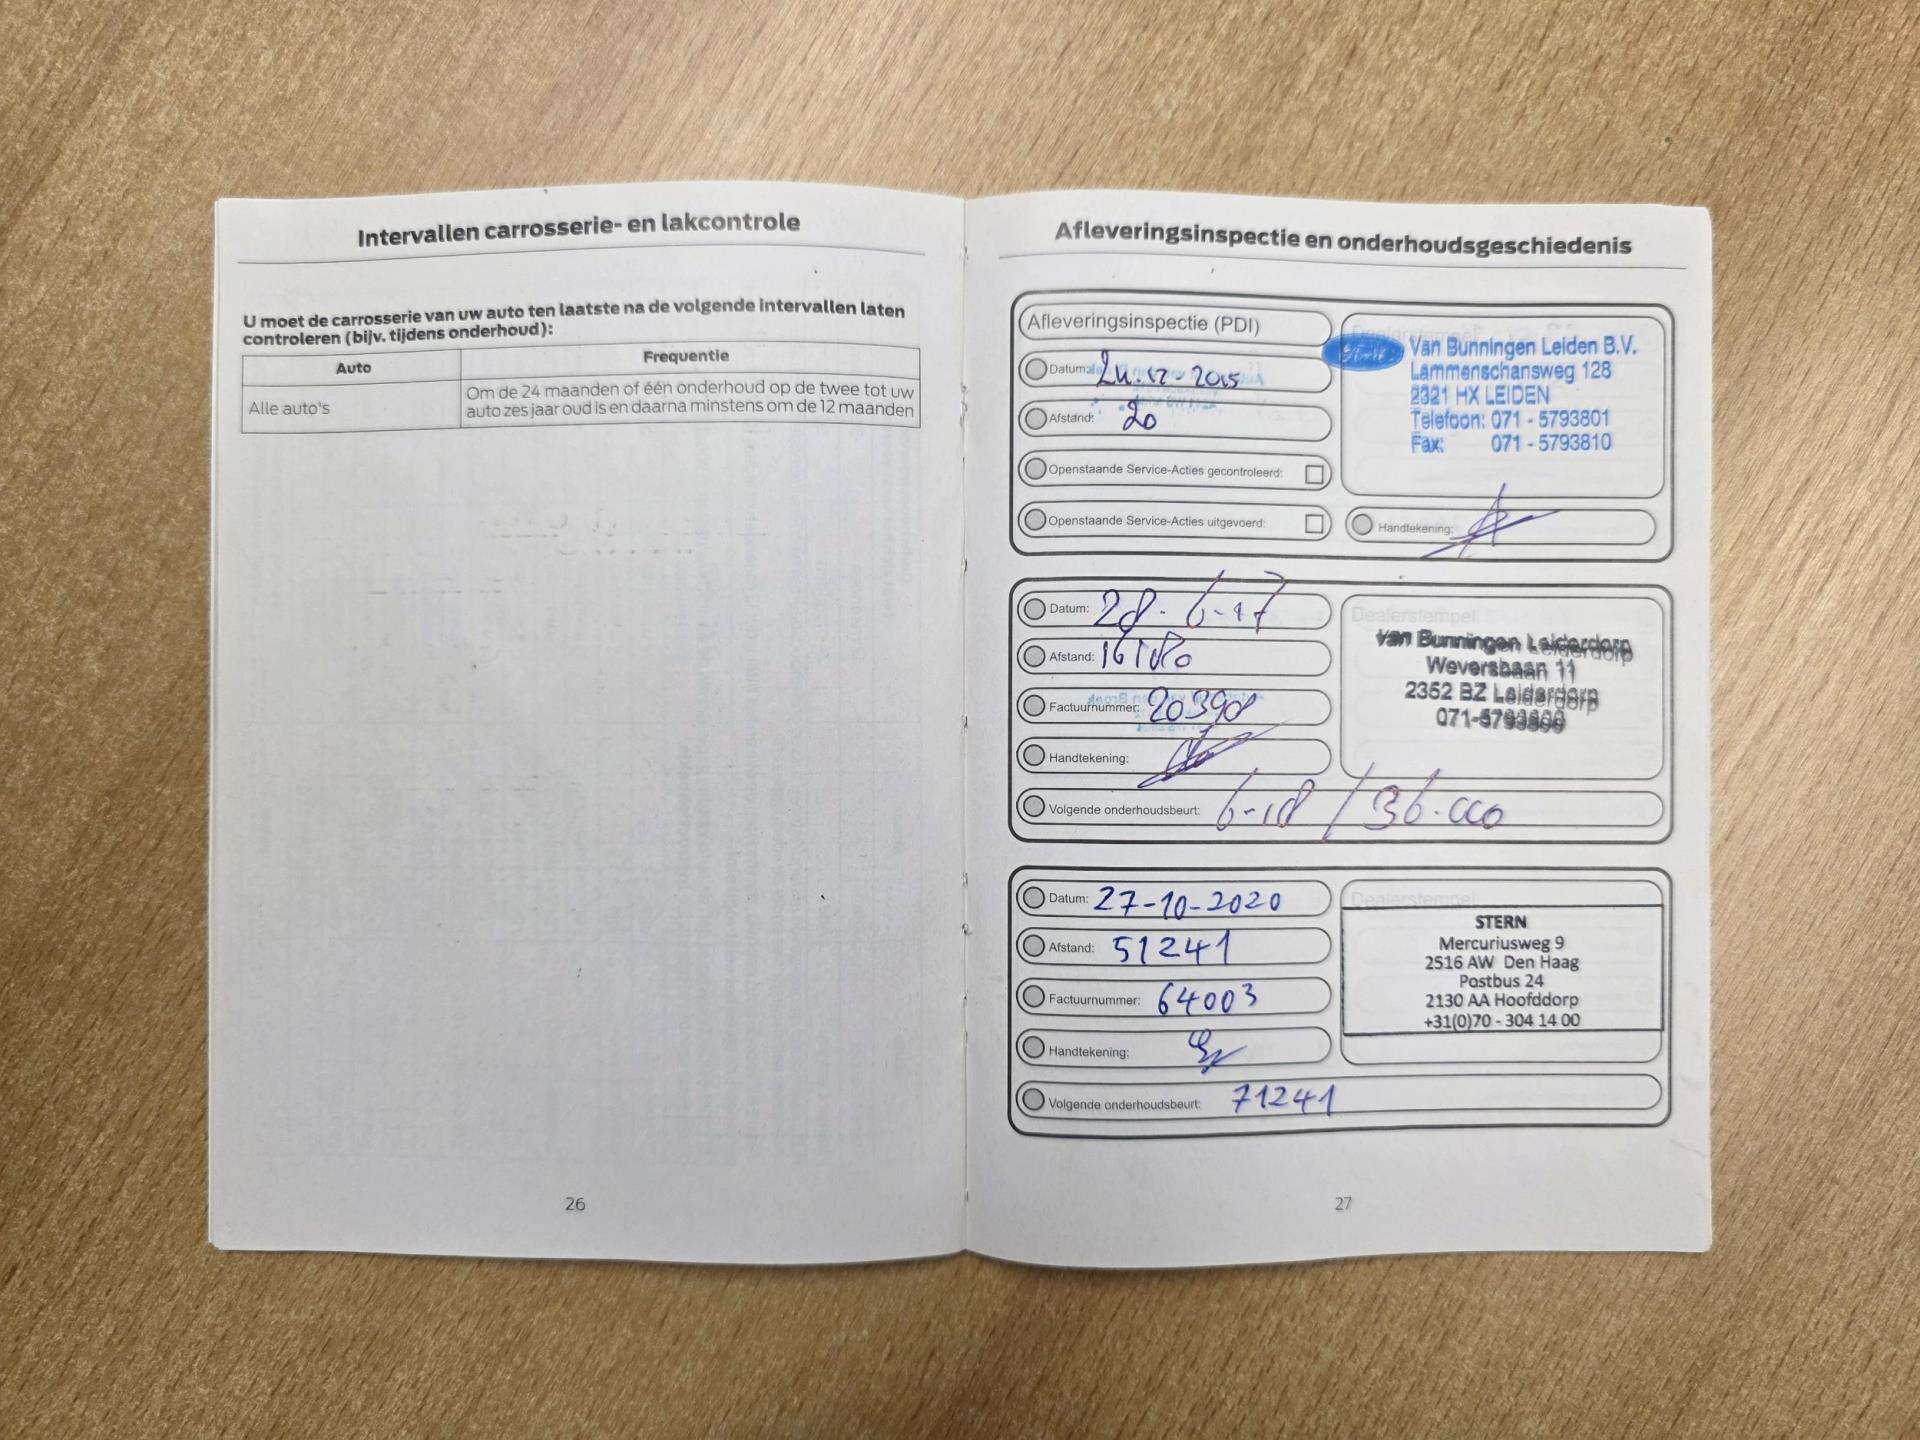 Intervallen carrosserie- en lakcontrole
U moet de carrosserie van uw auto ten laatste na de volgende intervallen laten
controleren (bijv. tijdens onderhoud):
Auto
Frequentie
Alle auto's
Om de 24 maanden of één onderhoud op de twee tot uw
auto zes jaar oud is en daarna minstens om de 12 maanden
26
Afleveringsinspectie en onderhoudsgeschiedenis
Afleveringsinspectie (PDI)
Datum: 24.12-2015
Afstand: 20
Openstaande Service-Acties gecontroleerd:
Openstaande Service-Acties uitgevoerd:
Dealerstempel
Van Bunningen Leiden B.V.
Lammenschansweg 128
2321 HX LEIDEN
Telefoon: 071 - 5793801
Fax: 071 - 5793810
Handtekening:
Datum: 28-6-17
Afstand:
Factuurnummer: 20398
Handtekening:
Volgende onderhoudsbeurt: 6-18 / 36.000
Dealerstempel
Van Bunningen Leiderdorp
Weversbaan 11
2352 BZ Leiderdorp
Datum: 27-10-2020
Afstand: 51241
Factuurnummer: 64003
Handtekening:
Volgende onderhoudsbeurt: 71241
Dealerstempel
STERN
Mercuriusweg 9
2516 AW Den Haag
Postbus 24
2130 AA Hoofddorp
+31(0)70 - 304 14 00
27